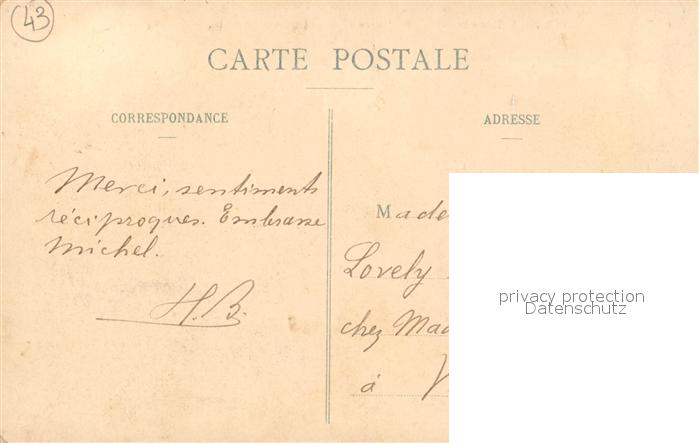 43
CARTE POSTALE
CORRESPONDANCE
ADRESSE
Merci, sentiments
réciproques. Embrasse
Michel.
H.B.
Made
Lovely
chez Mad
à V
privacy protection
Datenschutz